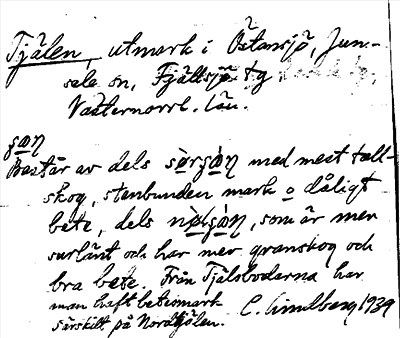 Tjälen, utmark i Östansjö, Jun-
sele sn, Fjällsjö tg
Västernorrl. län.
ʃạŋ
Består av dels sörʃạŋ med mest tall-
skog, stenbunden mark o dåligt
bete, dels nolʃạŋ, som är mer
surlänt och har mer granskog och
bra bete. Från Tjälsbodarna har
man haft betesmark
särskilt på Nordtjälen. C. Lindberg 1939